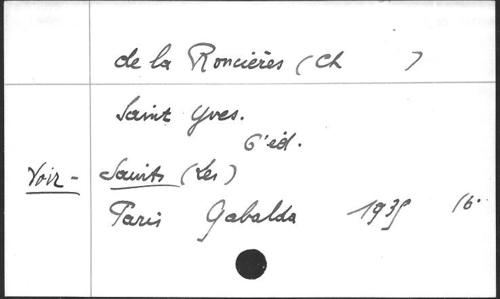 de la Roncières (Ch )
Saint Yves.
6'éd.
Voir - Saints (Les)
Paris Gabalda 1935 16°